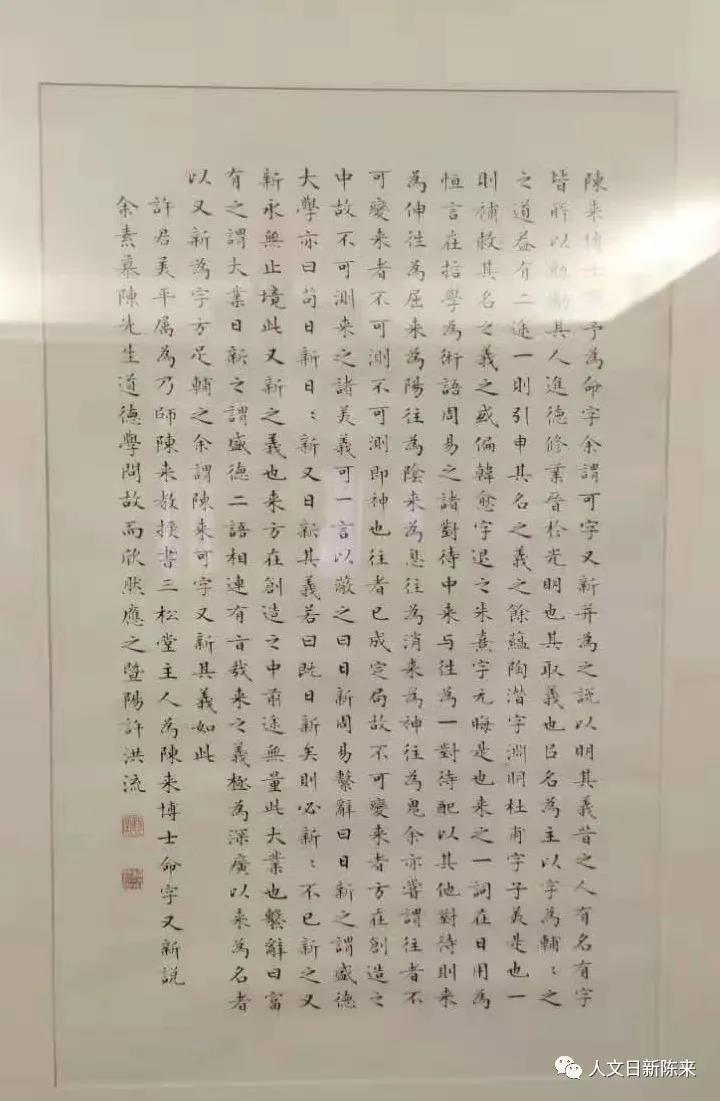 陳来博士予為命字余謂可字又新并為之説以明其義昔之人有名有字
皆所以勉勵其人進德修業晉於光明也其取義也以名為主以字為輔〻之
之道蓋有二途一則引申其名之義之餘蘊陶潜字淵明杜甫字子美是也一
則補救其名之義之或偏韓愈字退之朱熹字元晦是也来之一詞在日用為
恒言在哲學為術語周易之諸對待中来与往為一對待配以其他對待則来
為伸往為屈来為陽往為陰来為息往為消来為神往為鬼余亦嘗謂往者不
可變来者不可測不可測即神也往者已成定局故不可變来者方在創造之
中故不可測来之諸美義可一言以蔽之曰日新周易繫辭曰日新之謂盛德
大學亦曰苟日新日〻新又日新其義若曰既日新矣則必新〻不已新之又
新永無止境此又新之義也来方在創造之中前途無量此大業也繫辭曰富
有之謂大業日新之謂盛德二語相連有旨哉来之義極為深廣以来為名者
以又新為字方足輔之余謂陳来可字又新其義如此
許君美平属為乃師陳来教授書三松堂主人為陳来博士命字又新説
余素慕陳先生道德學問故而欣然應之暨陽許洪流
人文日新陈来